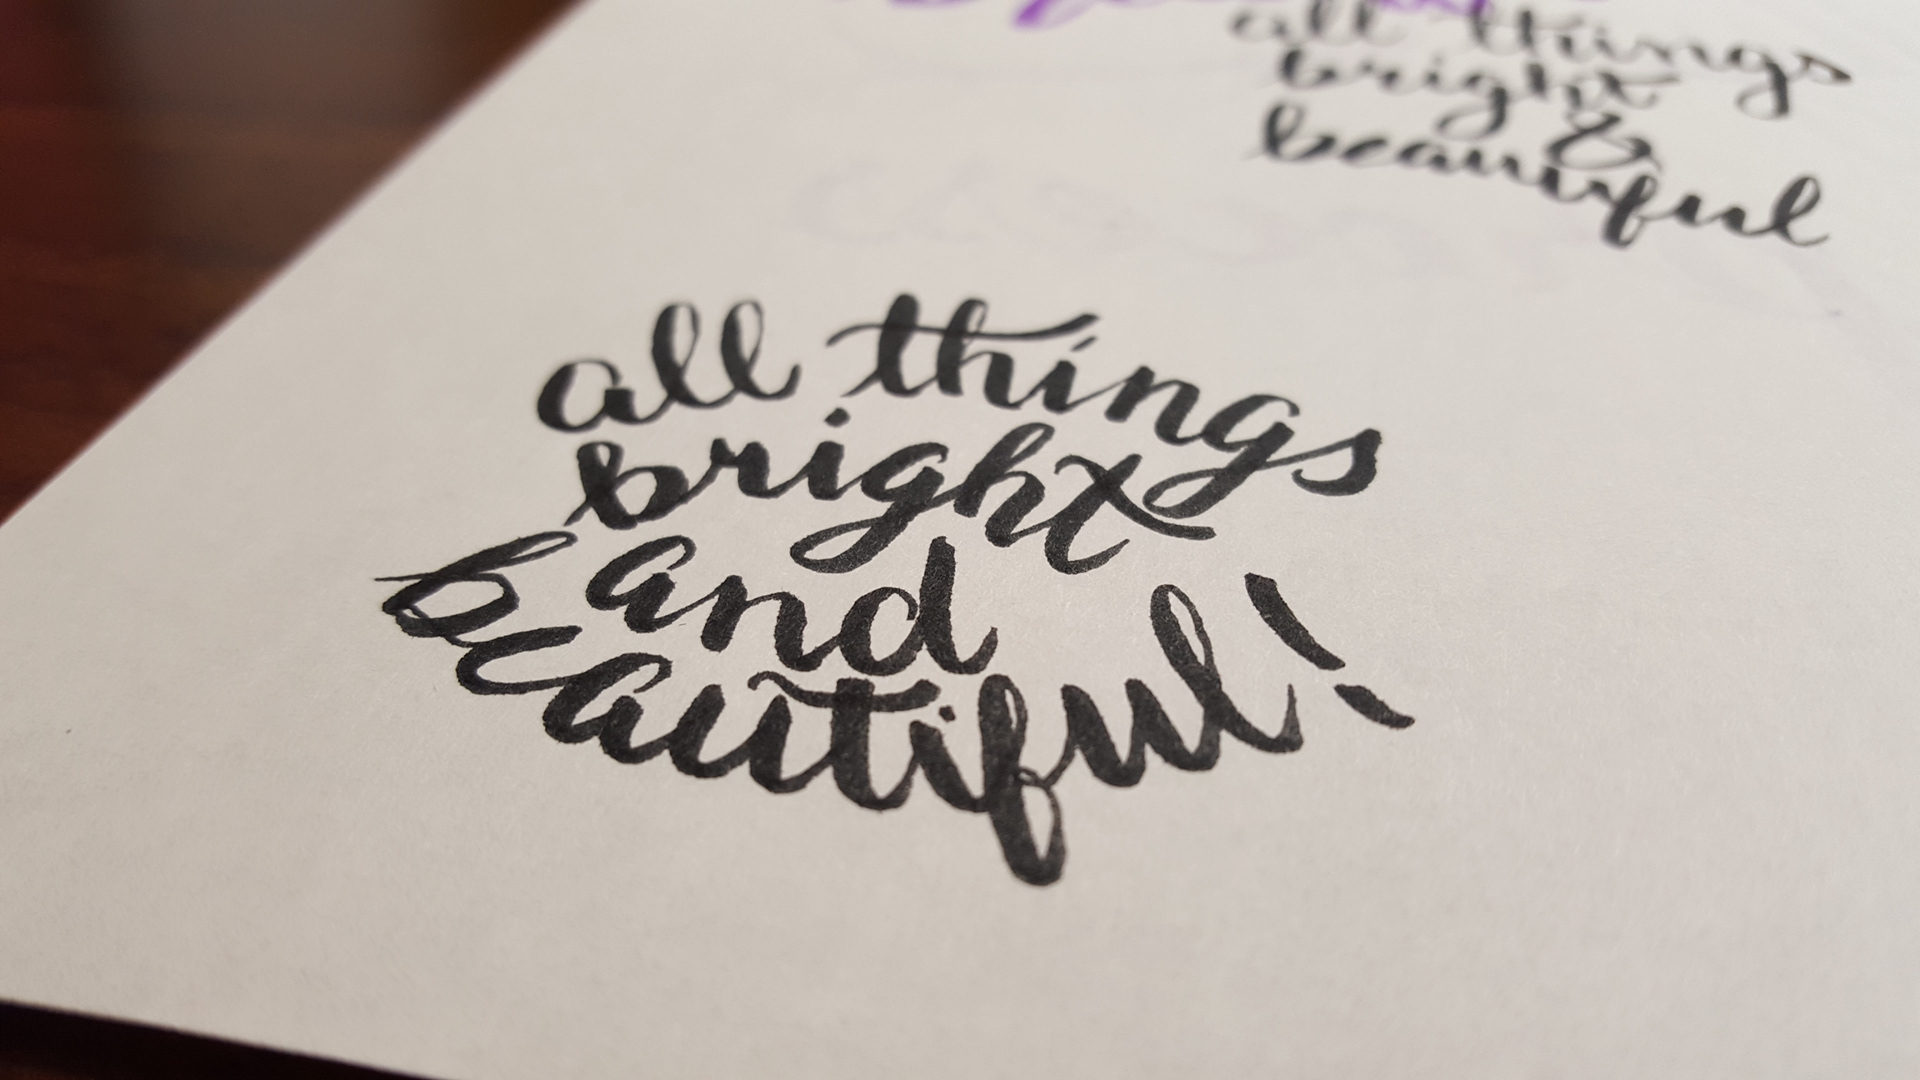 all things
bright
&
beautiful
all things
bright
and
beautiful!